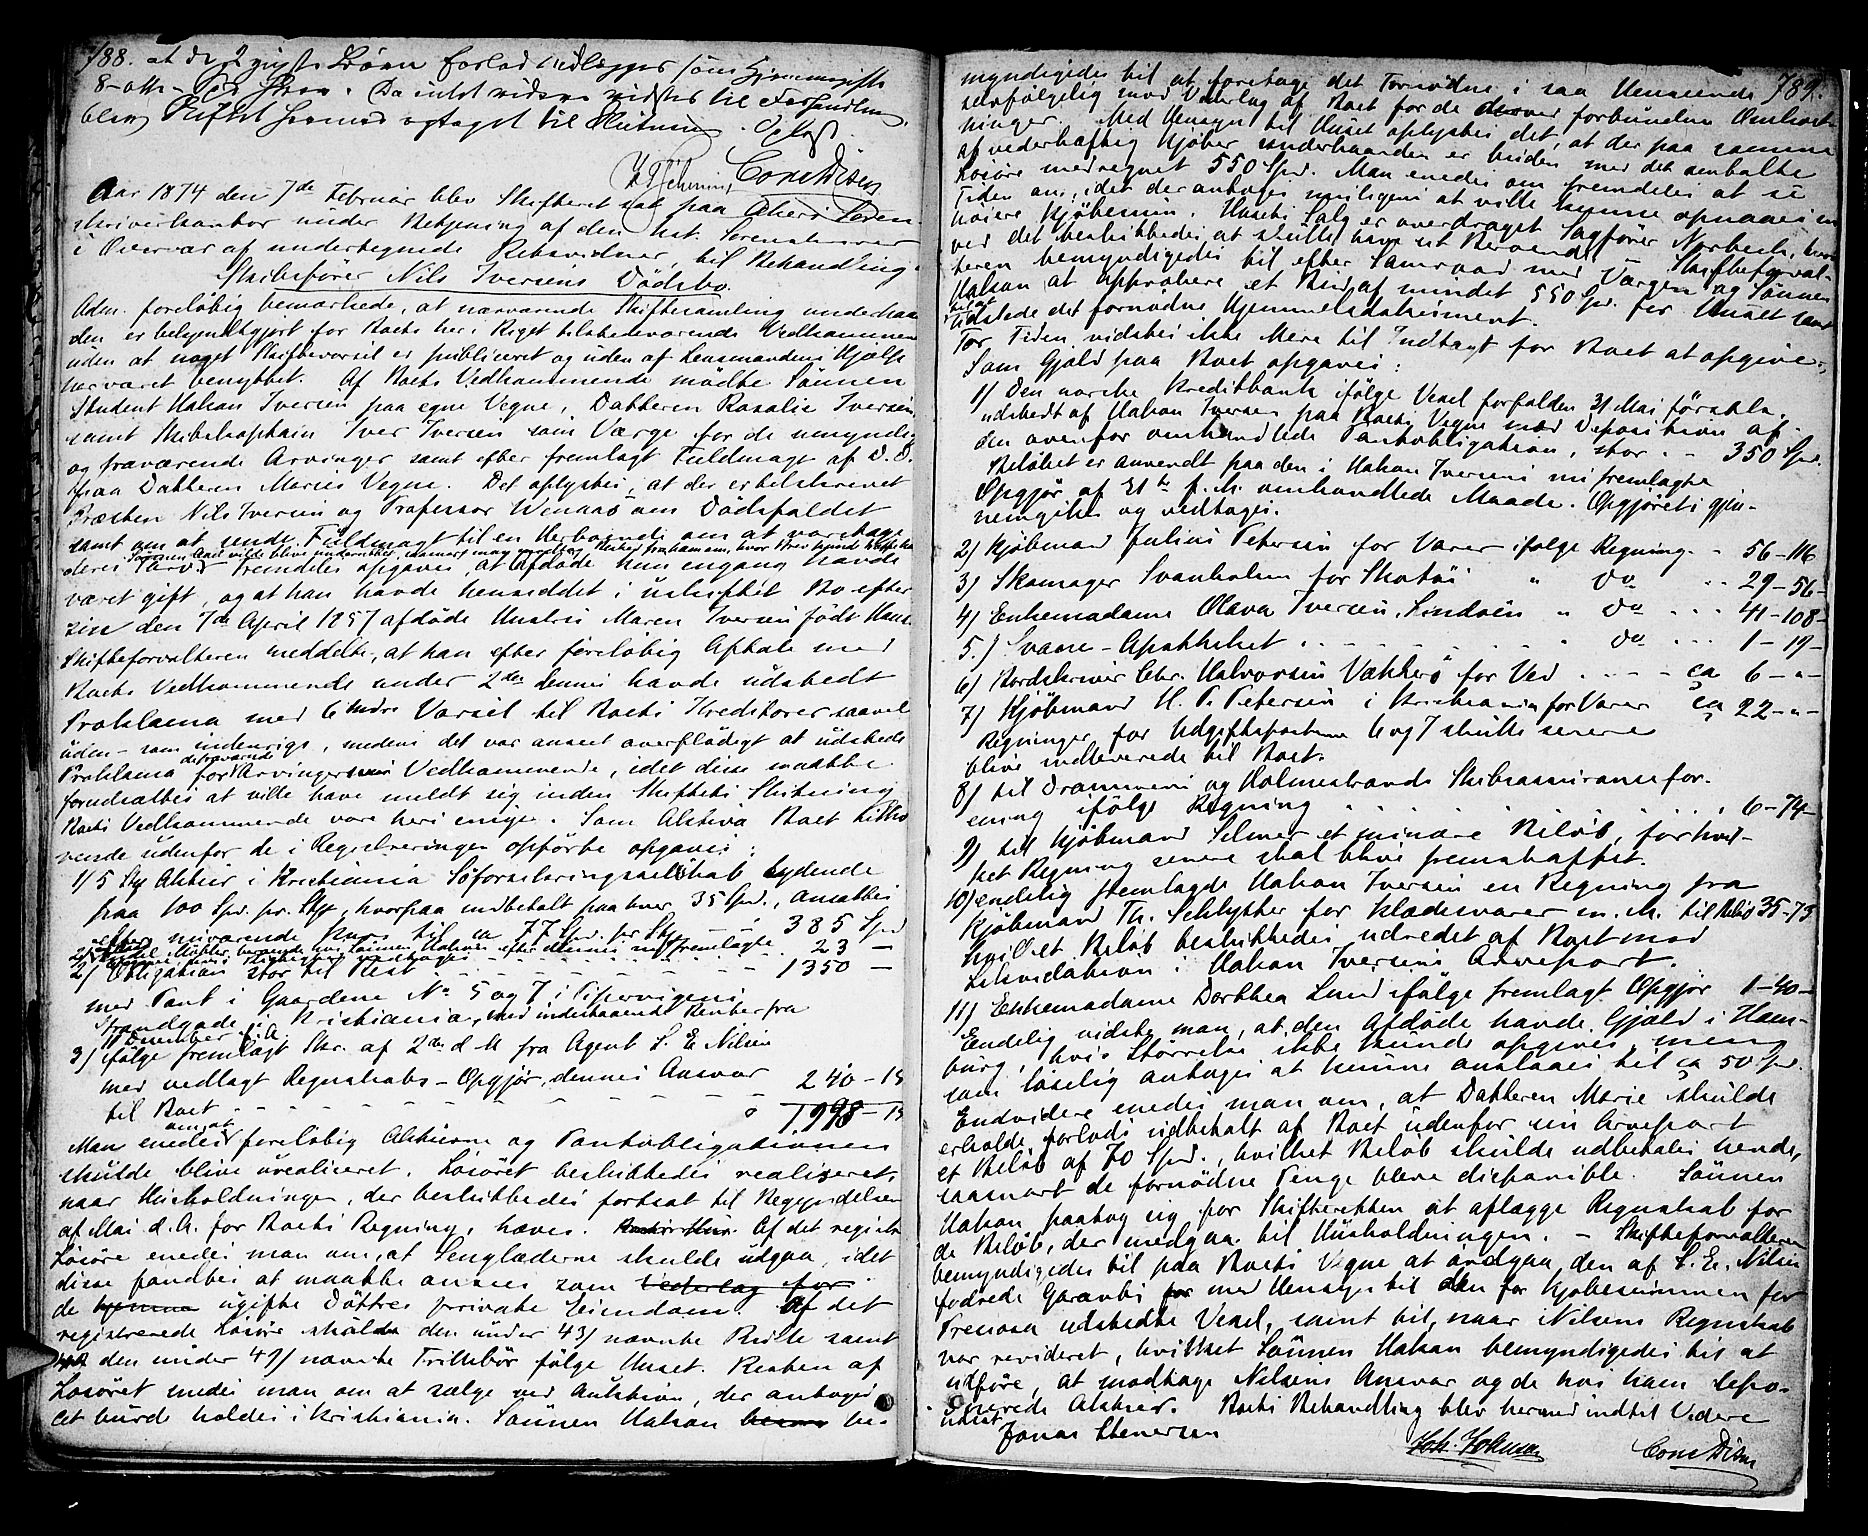 788. at de 2 yngste Børn forlod
8 - otte - Spd. Da intet videre vidstes til Forhandling
blev Skiftet hermed optaget til Slutning. Oplæst.
Cons Disen
Aar 1874 den 7de Februar blev Skifteret sat paa Akers Soren-
skriverkontor under Betjening af den kst. Sorenskriver
i Overvær af undertegnede Retsvidner, til Behandling
Skibsfører Nils Iversens Dødsbo.
Adm. foreløbig bemærkede, at nærværende Skiftesamling underhaan-
den er bekjendtgjort for Boets her i Riget tilstedeværende Vedkommende
uden at noget Skiftevarsel er publiceret og uden at Lensmandens Hjælp
har været benyttet. Af Boets Vedkommende mødte Sønnen
Student Hakon Iversen paa egne Vegne, Datteren Rosalie Iversen,
samt Skibskaptain Iver Iversen som Værge for de umyndige
og fraværende Arvinger samt efter fremlagt Fuldmagt af D. D.
paa Datteren Maries Vegne. Det oplystes, at der er tilskrevet
Præsten Nils Iversen og Professor Winaas om Dødsfaldet
samt om at sende Fuldmagt til en Herboende om at varetage
deres Tarv. Fremdeles opgaves, at Afdøde kun engang havde
været gift, og at han havde hensiddet i uskiftet Bo efter
sin den 7de April 1857 afdøde Hustru Maren Iversen født Hans
Skifteforvalteren meddelte, at han efter foreløbig Aftale med
Boets Vedkommende under 2den dennes havde udstedt
Proklama med 6 Mdrs Varsel til Boets Kreditorer saavel
uden- som indenrigs, medens det var anseet overflødigt at udstede
Proklama for de fraværende Arvingers Vedkommende, idet disse maatte
forudsættes at ville have meldt sig inden Skiftets Slutning
Boets Vedkommende vare heri enige. Som Aktiva Boet tilho-
rende udenfor de i Registreringen opførte opgaves:
1) 5 Stk Aktier i Kristiania Søforsikringsselskab lydende
paa 100 Spd. pr. Stk, hvorpaa indbetalt paa hver 35 Spd., ansattes
efter nuværende Kurs til ca 77 Spd. pr Stk - - 385 Spd
23 -
2) Obligation stor til Rest - - - - 1350 -
med Pant i Gaardene No 5 og 7 i Pipervigens
Strandgade i Kristiania, med indestaaende Renter fra
11 December f. A.
3) ifølge fremlagt Skr. af 2den d M fra Agent S. E. Nilsen
med vedlagt Regnskabs-Opgjør, dennes Ansvar
til Boet - - - - 240 - 15
1,998 - 15
Man enedes om at foreløbig Aktierne og Pantobligationen
skulde blive urealiseret. Løsøret besluttedes realiseret,
naar Husholdningen, der besluttedes fortsat til Begyndelsen
af Mai d. A. for Boets Regning, hæves. Af det registr.
Løsøre enedes man om, at Sengklæderne skulde udgaa, idet
disse fandtes at maatte ansees som Vederlag for
de hjemme ugifte Døttres private Eiendom. Af det
registrerede Løsøre skulde den under 43) nævnte Rulle samt
den under 49) nævnte Trillebør følge Huset. Resten af
Løsøret enedes man om at sælge ved Auktion, der antoges
at burde holdes i Kristiania. Sønnen Hakon be-
789.
myndigedes til at foretage det Fornødne i saa Henseende
selvfølgelig mod Vederlag af Boet for de derved forbundne Omkost-
ninger. Med Hensyn til Huset oplystes det, at der paa samme
af vederhæftig Kjøber underhaanden er buden med det omtalte
Løsøre medregnet 550 Spd. Man enedes om fremdeles at se
Tiden an, idet der antoges muligens at ville kunne opnaaes en
høiere Kjøbesum. Husets Salg er overdraget Sagfører Norbech, hvor-
ved det besluttedes at skulle have sit Beroende. Skifteforval-
teren bemyndigedes til efter Samraad med Værgen og Sønnen
Hakon at approbere et Bud af mindst 550 Spd. for Huset samt
udstede det fornødne Hjemmelsdokument.
For Tiden vidstes ikke Mere til Indtægt for Boet at opgive.
Som Gjæld paa Boet opgaves:
1) Den norske Kreditbank ifølge Vexel forfalden 31 Mai førstk.
udstedt af Hakon Iversen paa Boets Vegne mod Deposition af
den ovenfor omhandlede Pantobligation, stor - - 350 Spd.
Beløbet er anvendt paa den i Hakon Iversens nu fremlagte
Opgjør af 31te f. M. omhandlede Maade. Opgjøret gjen-
nemgikes og vedtoges.
2) Kjøbmand Julius Petersen for Varer ifølge Regning - 56 - 116
3) Skomager Svanholm for Skotøi " Do - - 29 - 56 -
4) Enkemadame Olava Iversen, Sandøen " Do - - - 41 - 108 -
5.) Svane-Apotheket - - - - " Do - - - 1 - 19 -
6) Bordskriver Chr. Halvorsen Vækkerø for Ved - - - - ca 6 - " -
7) Kjøbmand H. P. Petersen i Kristiania for Varer ca 22 - " -
Regninger for Udgiftsposterne 6 og 7 skulle senere
blive indleverede til Boet.
8) til Drammens og Holmestrands Skibsassuranceefor-
ening ifølge Regning - - - - 6 - 74 -
9) til Kjøbmand Selmer et mindre Beløb, for hvil-
ket Regning senere skal blive fremskaffet.
10) endelig fremlagde Hakon Iversen en Regning fra
Kjøbmand Th. Schlytter for Klædesvarer m. M. til Beløb 35 - 73
hvilket Beløb besluttedes udredet af Boet mod
Likvidation i Hakon Iversens Arvepart.
11) Enkemadame Dorthea Lund ifølge fremlagt Opgjør 1 - 40 -
Endelig vidste man, at den Afdøde havde Gjæld i Ham-
burg, hvis Størrelse ikke kunde opgives, men
som løselig antoges at kunne anslaaes til ca 50 Spd.
Endvidere enedes man om, at Datteren Marie skulde
erholde forlods udbetalt af Boet udenfor sin Arvepart
et Beløb af 70 Spd., hvilket Beløb skulde udbetales hende,
saasnart de fornødne Penge bleve disponible. Sønnen
Hakon paatog sig for Skifteretten at aflægge Regnskab for
de Beløb, der medgaa til Husholdningen. - Skifteforvalteren
bemyndigedes til paa Boets Vegne at indgaa den af S. E. Nilsen
fodrede Garanti for med Hensyn til den for Kjøbesummen for
Prenosa udstedte Vexel, samt til, naar Nilsens Regnskab
var revideret, hvilket Sønnen Hakon bemyndigedes til at
udføre, at modtage Nilsens Ansvar og de hos ham depo-
nerede Aktier. Boets Behandling blev hermed indtil Videre
udsat.
Jonas Stenersen
Joh. Johnsen
Cons Disen